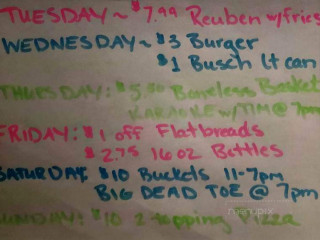 TUESDAY ~ $7.99 Reuben w/fries
WEDNESDAY ~ $3 Burger
$1 Busch lt can
THURSDAY: $5.50 Boneless Basket
KARAOKE w/TIM @ 7pm
FRIDAY: $1 off Flatbreads
$2.75 16oz Bottles
SATURDAY $10 Buckets 11-7pm
BIG DEAD TOE @ 7pm
SUNDAY: $10 2 topping